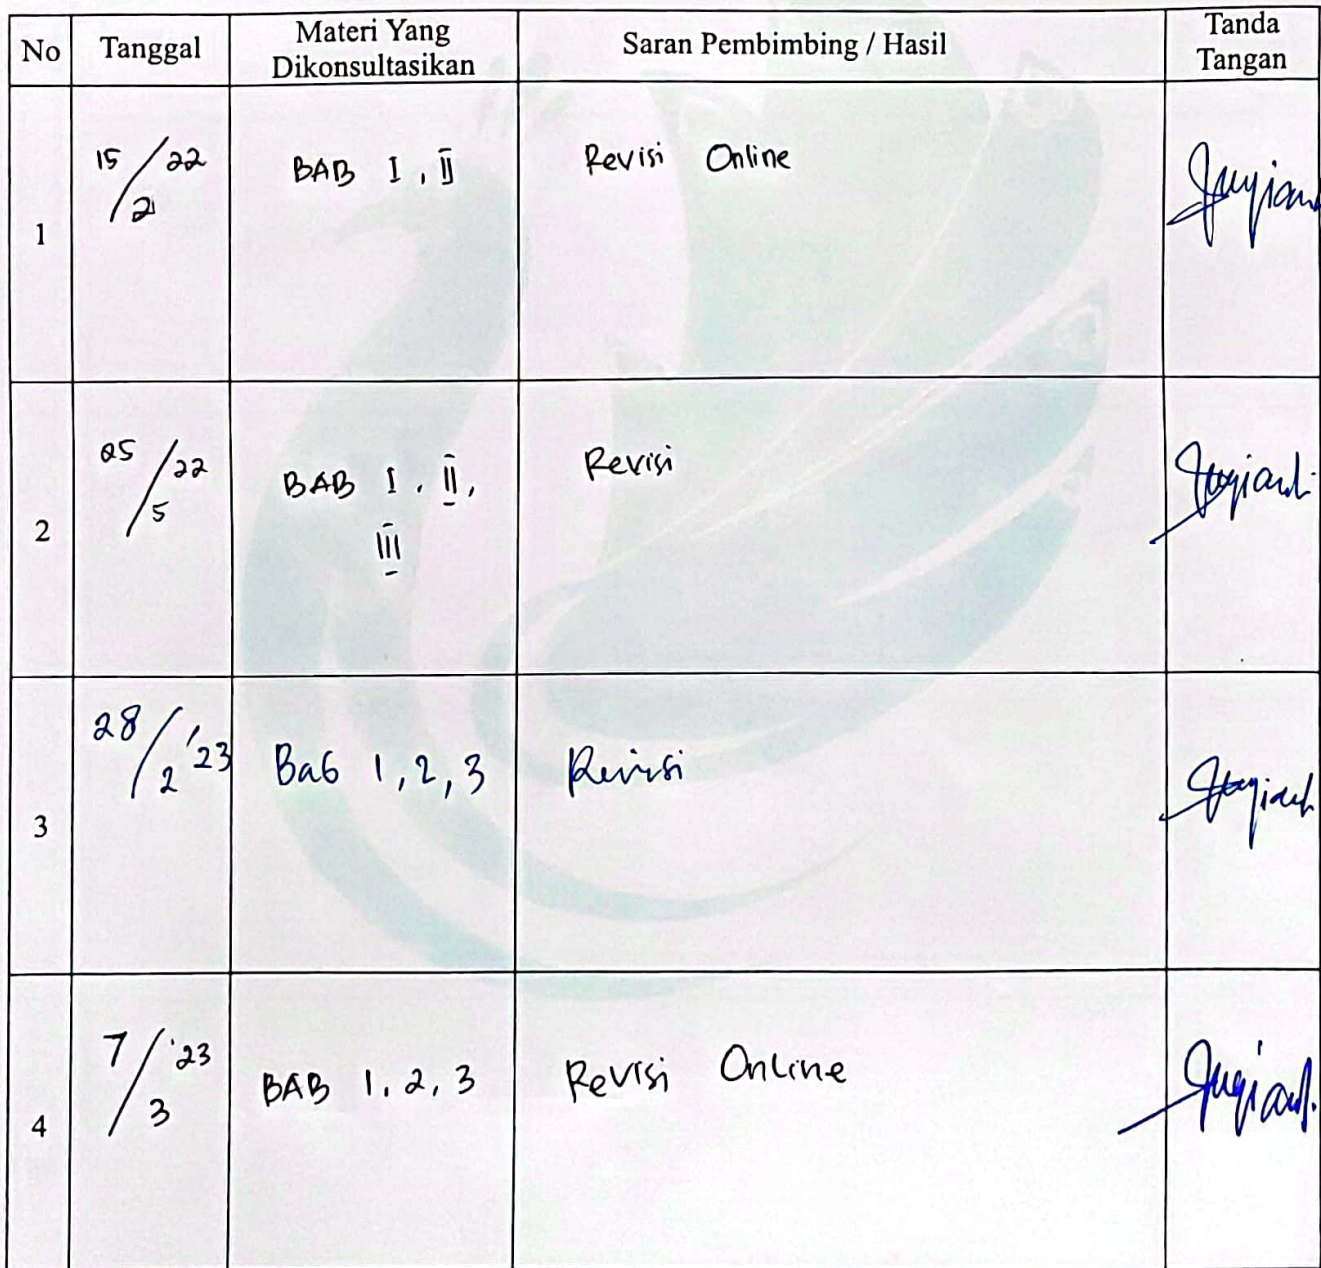 No Tanggal Materi Yang Dikonsultasikan Saran Pembimbing / Hasil Tanda Tangan
1 15/2 22 BAB I, II Revisi Online
2 25/5 22 BAB I, II, III Revisi
3 28/2 '23 Bab 1, 2, 3 Revisi
4 7/3 '23 BAB 1, 2, 3 Revisi Online